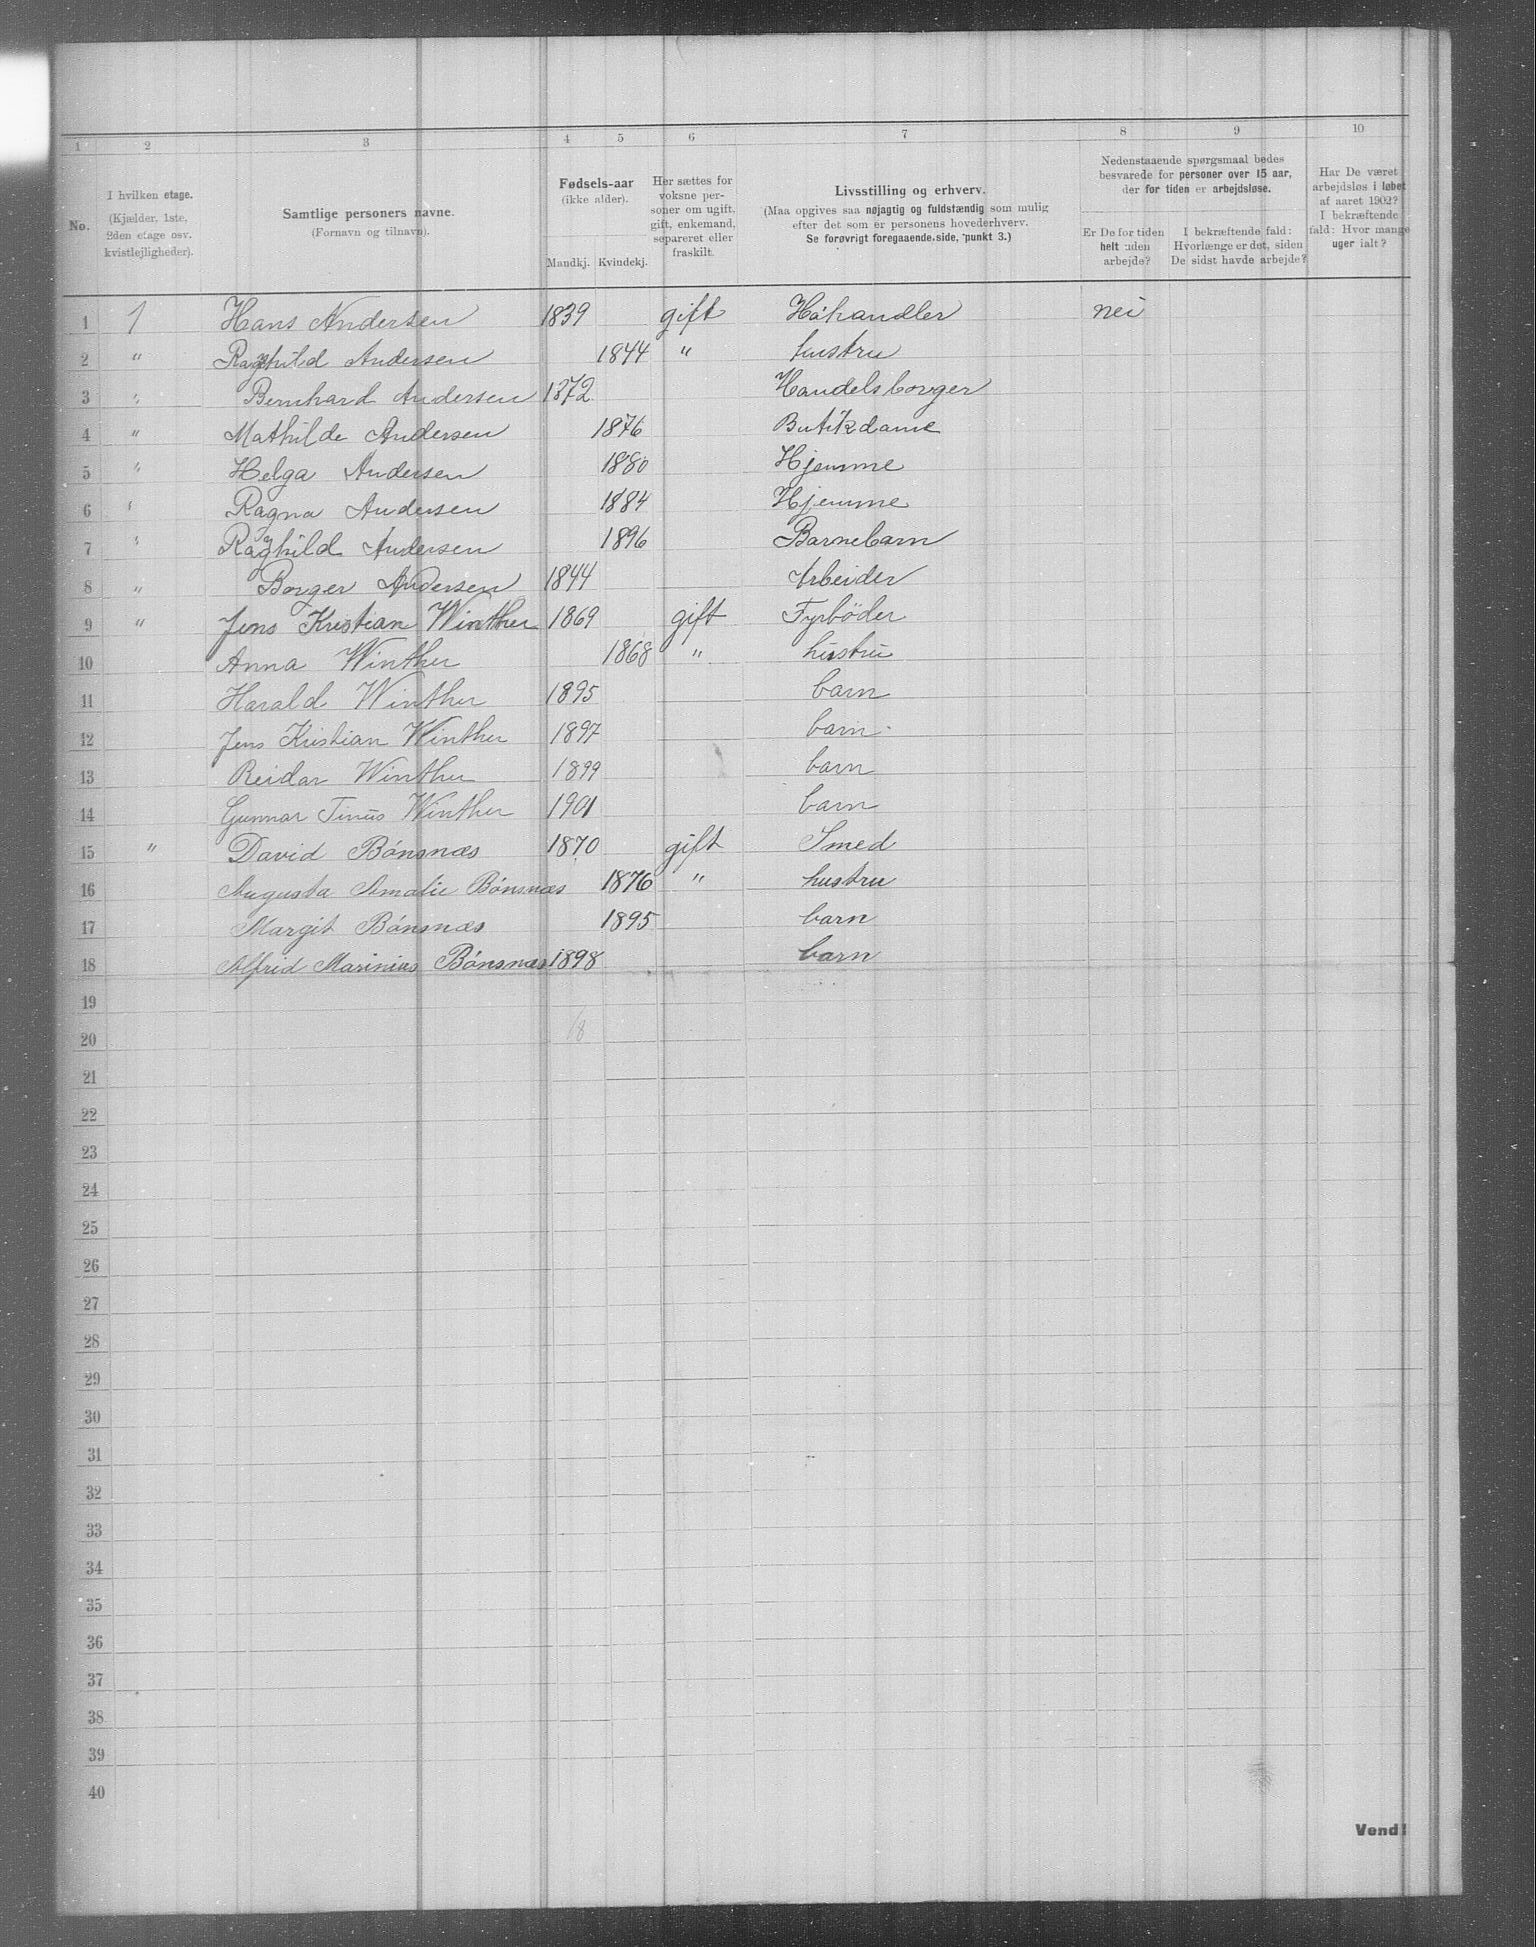 1 2 3 4 5 6 7 8 9 10
No.
I hvilken etage.
(Kjælder, 1ste,
2den etage osv.
kvistlejligheder).
Samtlige personers navne.
(Fornavn og tilnavn).
Fødsels-aar
(ikke alder).
Mandkj. Kvindekj.
Her sættes for
voksne per-
soner om ugift,
gift, enkemand,
separeret eller
fraskilt.
Livsstilling og erhverv.
(Maa opgives saa nøjagtig og fuldstændig som mulig
efter det som er personens hovederhverv.
Se forøvrigt foregaaende side, punkt 3.)
Nedenstaaende spørgsmaal bedes
besvarede for personer over 15 aar,
der for tiden er arbejdsløse.
Er De for tiden
helt uden
arbejde?
I bekræftende fald:
Hvorlænge er det, siden
De sidst havde arbejde?
Har De været
arbejdsløs i løbet
af aaret 1902?
I bekræftende
fald: Hvor mange
uger ialt?
1 1 Hans Andersen 1839 gift Høhandler nei
2 " Ragnhild Andersen 1844 " hustru
3 " Bernhard Andersen 1872 Handelsborger
4 " Mathilde Andersen 1876 Butikdame
5 " Helga Andersen 1880 Hjemme
6 " Ragna Andersen 1884 Hjemme
7 " Raghild Andersen 1896 Barnebarn
8 " Borger Andersen 1844 Arbeider
9 " Jens Kristian Winther 1869 gift Fyrbøder
10 Anna Winther 1868 " hustru
11 Harald Winther 1895 barn
12 Jens Kristian Winther 1897 barn
13 Reidar Winther 1899 barn
14 Gunnar Tinus Winther 1901 barn
15 " David Bónsnæs 1870 gift Smed
16 Augusta Amalie Bónsnæs 1876 " hustru
17 Margit Bónsnæs 1895 barn
18 Alfrid Marinius Bónsnæs 1898 barn
19
20 18
21
22
23
24
25
26
27
28
29
30
31
32
33
34
35
36
37
38
39
40
Vend!